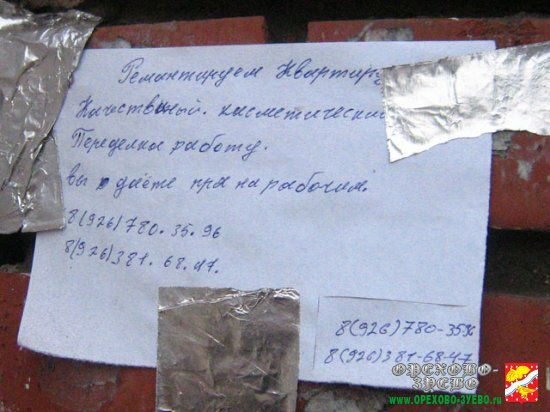 Ремантируем квартиру
Качествиный. касметически
Переделка работу.
вы даёте пря на рабочим.
8(926)780.35.96
8(926)381.68.47.
8(926)780-3596
8(926)381-68-47
ОРЕХОВО-
ЗУЕВО
www.ОРЕХОВО-ЗУЕВО.ru